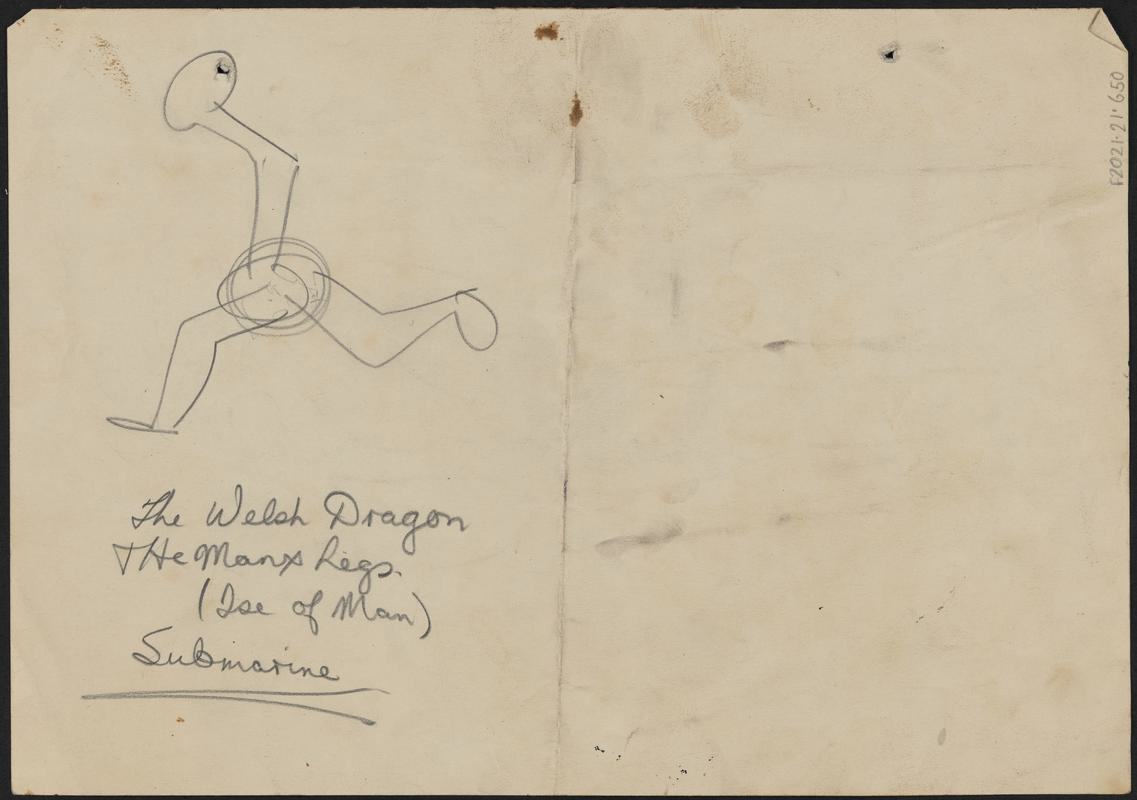 The Welsh Dragon
THe Manx Legs.
(Ise of Man)
Submarine
F2021.21.650